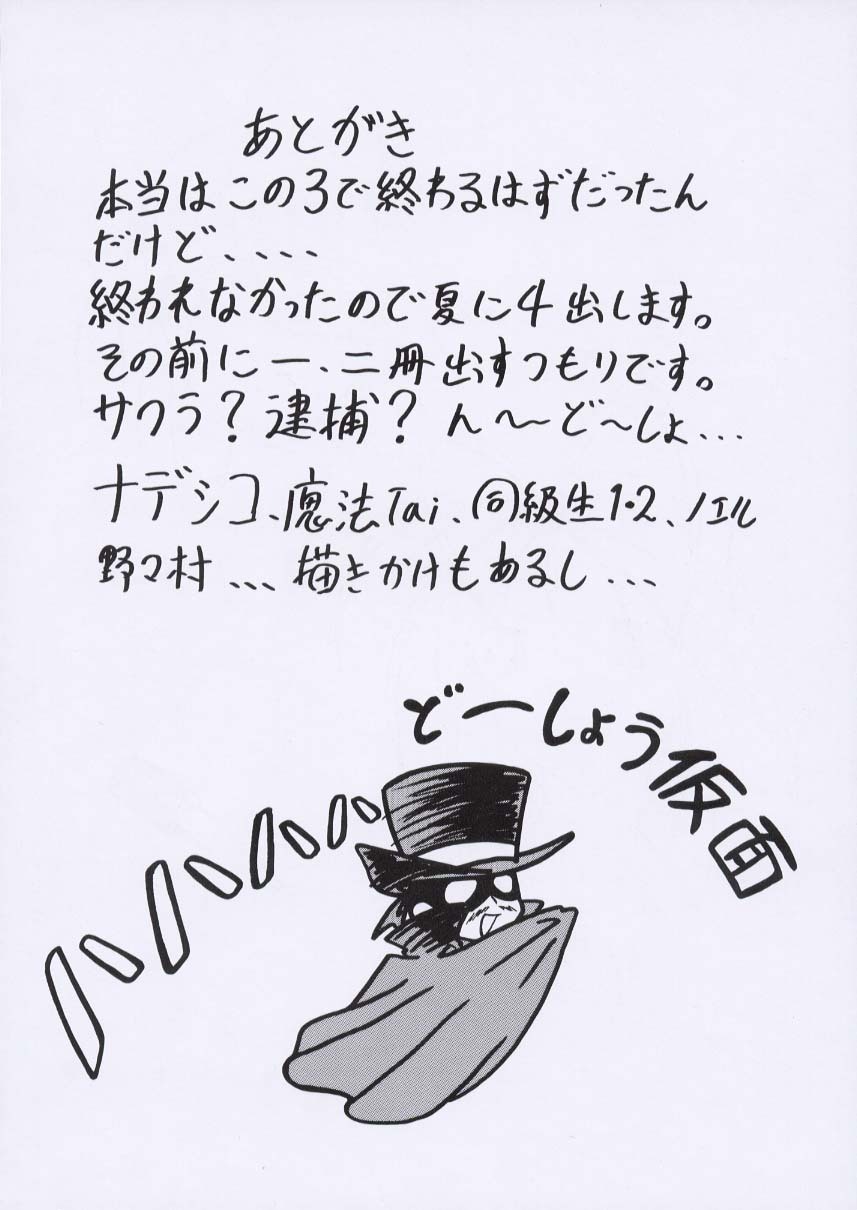 あとがき
本当はこの3で終わるはずだったん
だけど、、、、
終われなかったので夏に4出します。
その前に一、二冊出すつもりです。
サクラ?逮捕?ん〜ど〜しょ...
ナデシコ、魔法Tai、同級生1・2、ノエル
野々村、、、描きかけもあるし、、、
どーしょう仮面
ハハハハ